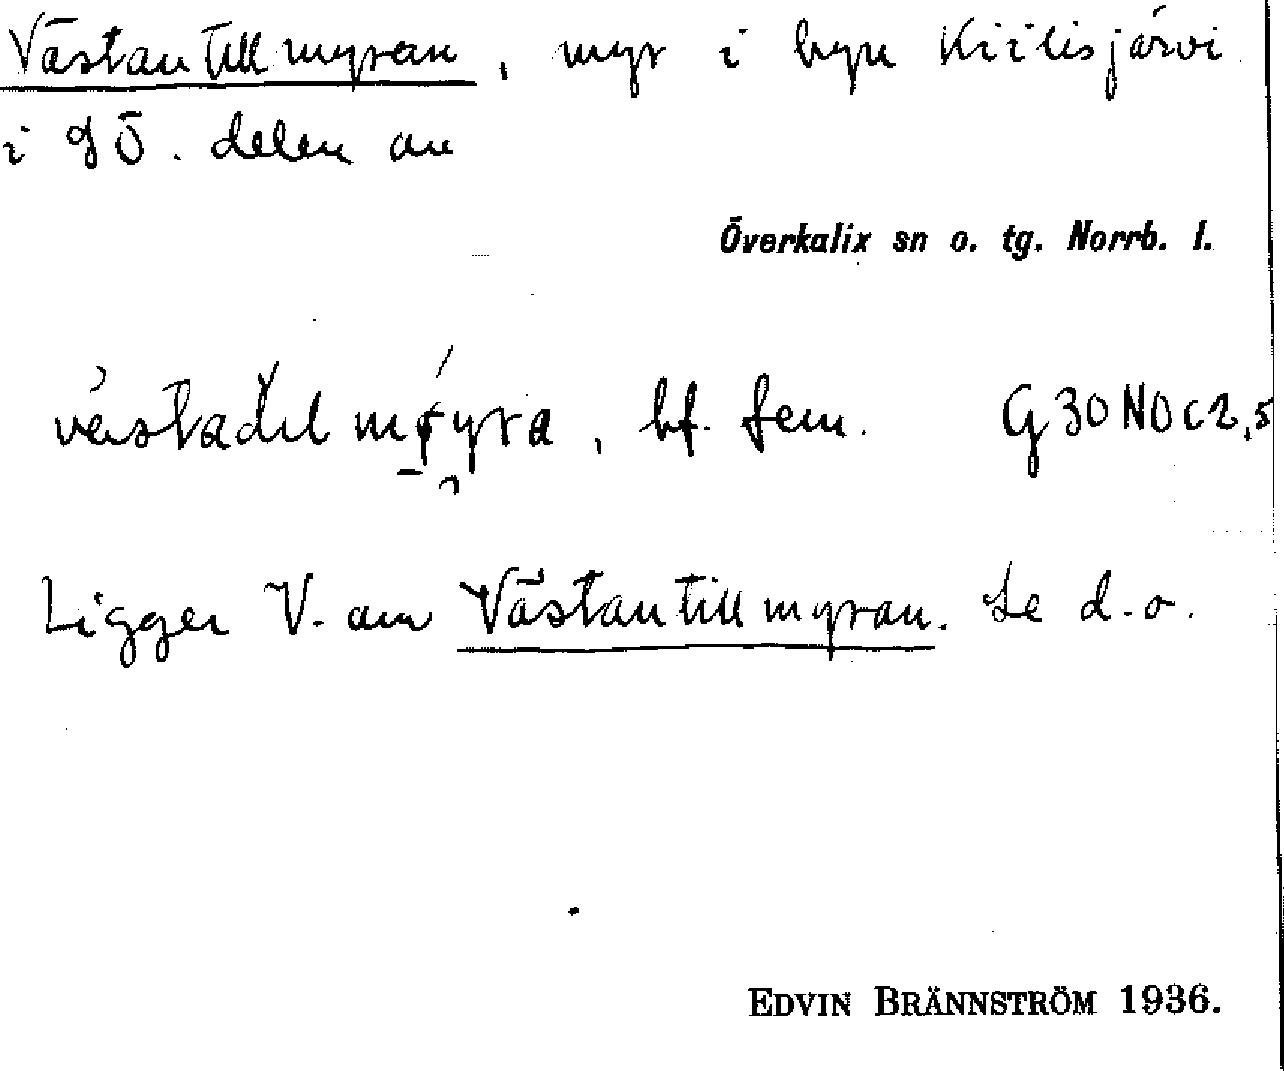 Västantillmyran, myr i byn Kiilisjärvi
i SÖ. delen av
Överkalix sn o. tg. Norrb. l.
bf. fem. G 30 NO c 2,5
Ligger V. om Västantillmyran. Se d.o.
EDVIN BRÄNNSTRÖM 1936.